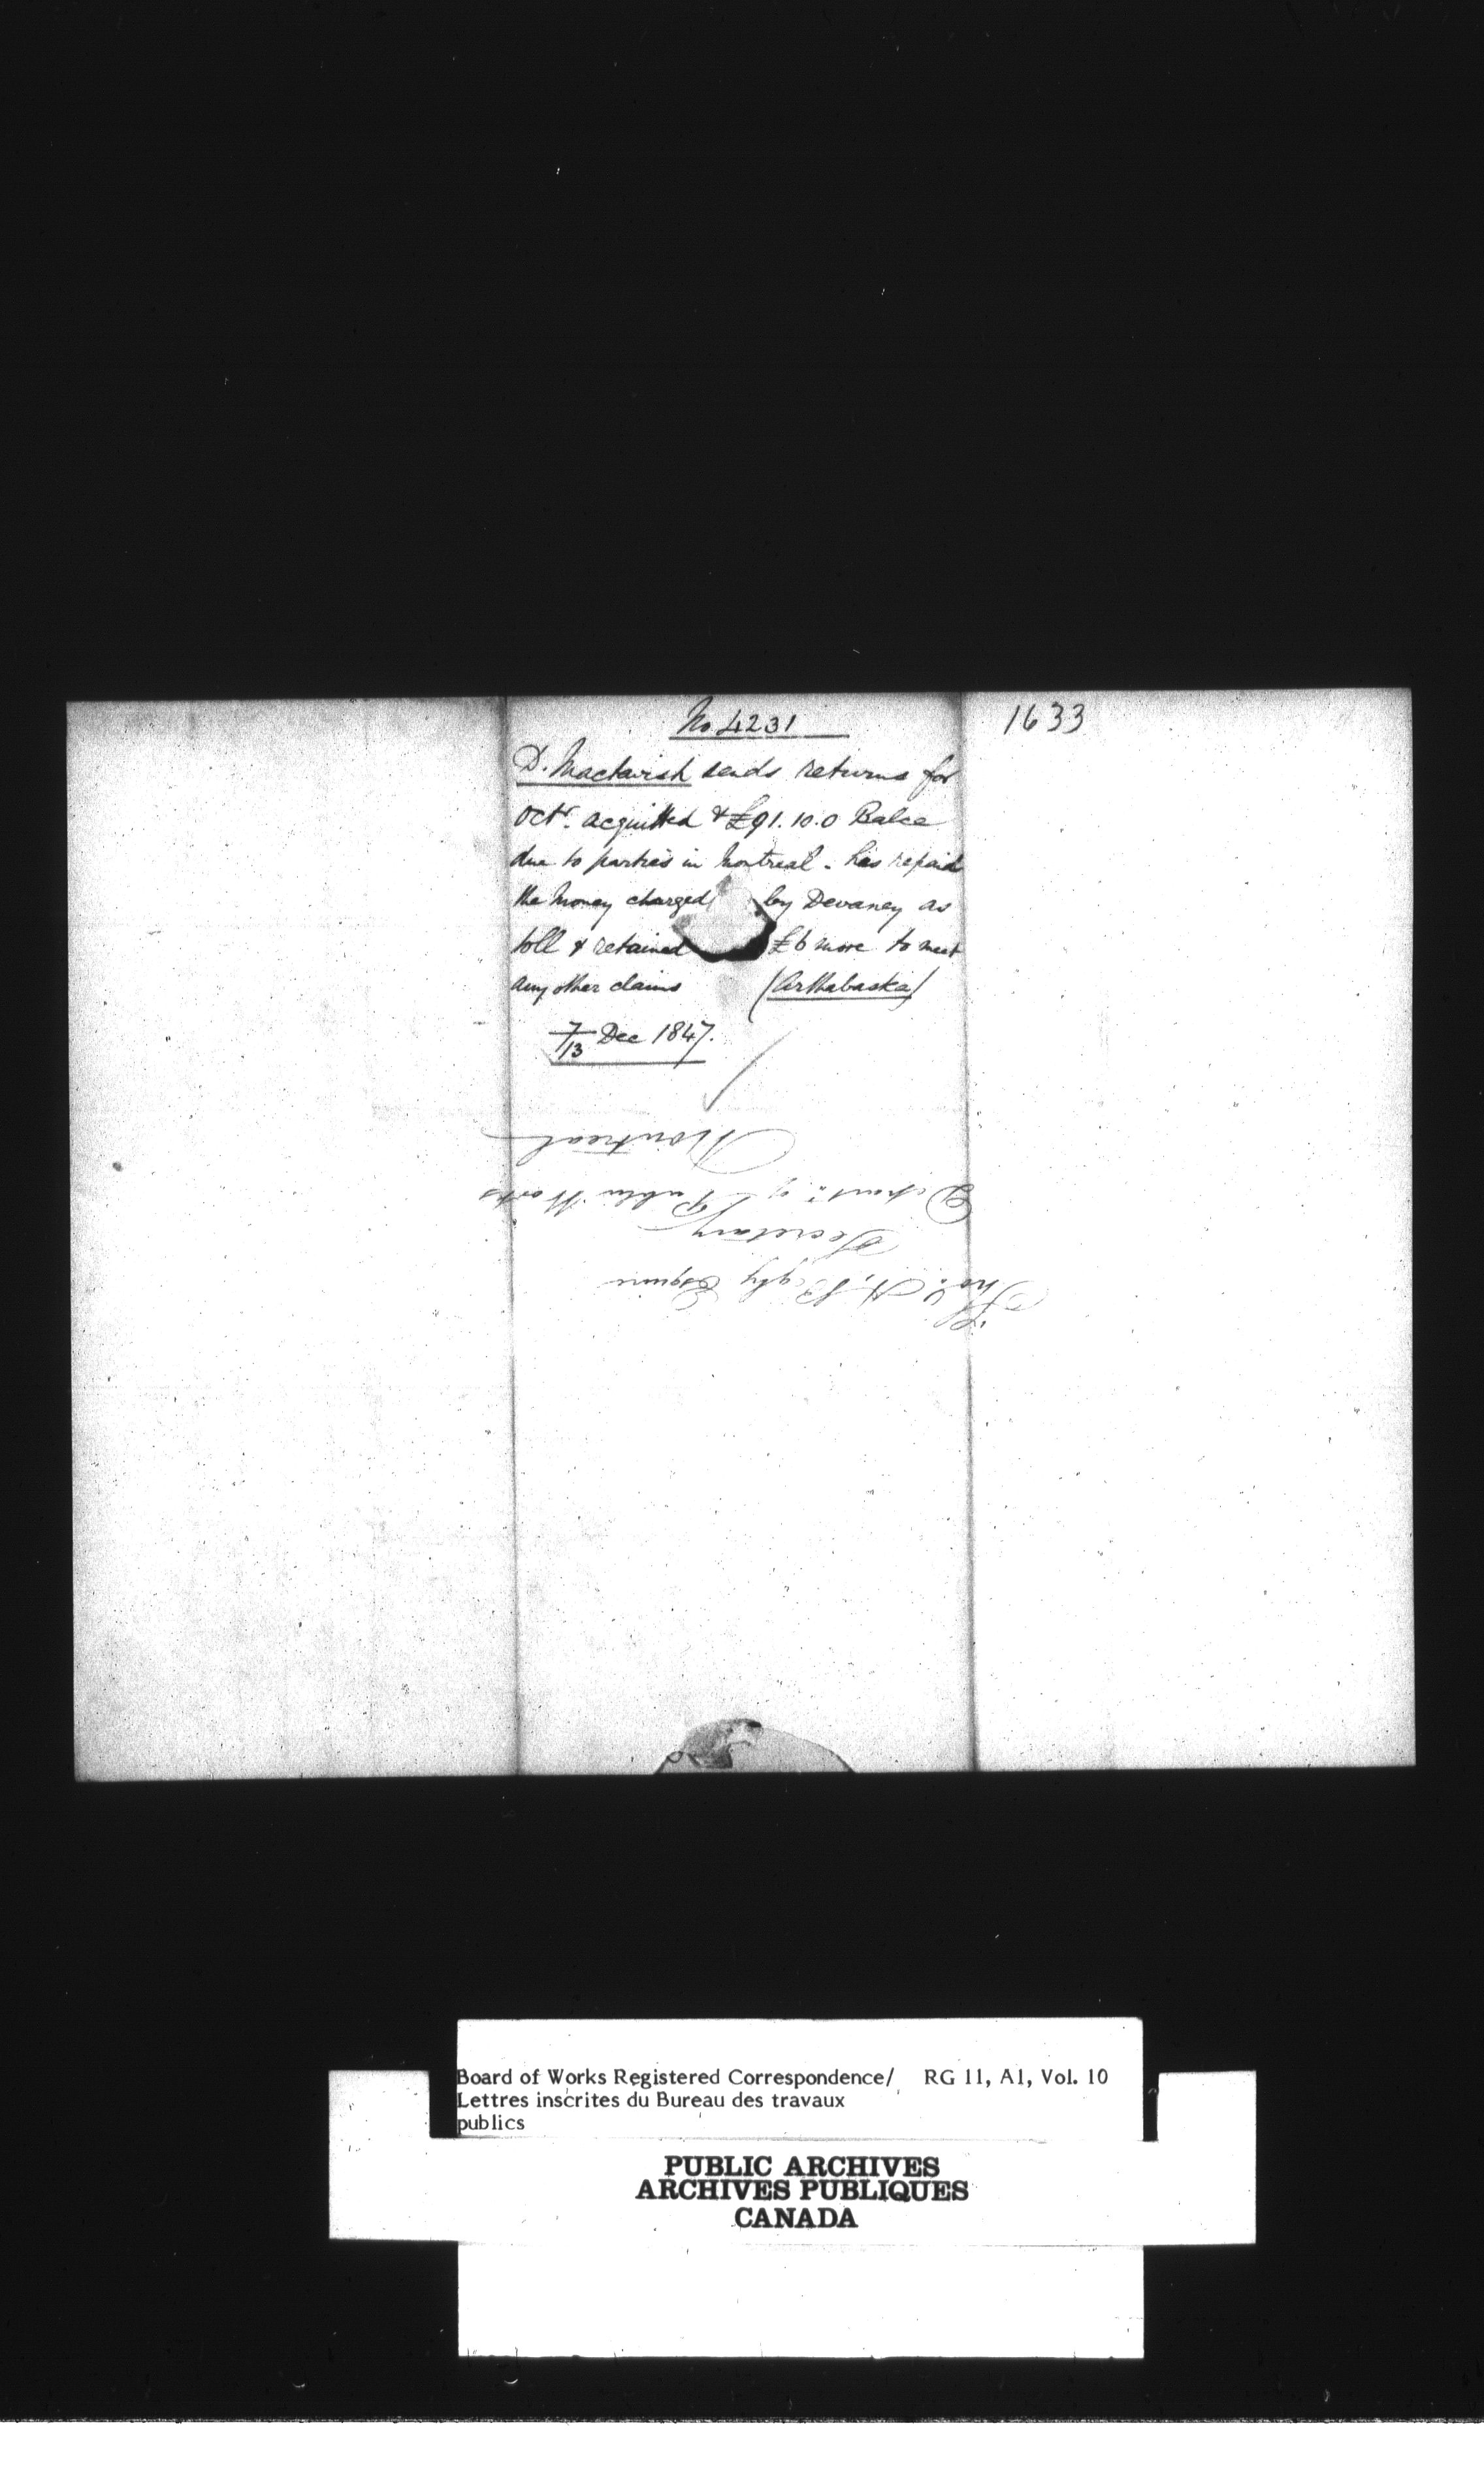 No 4231
1633
D. Mactavish sends returns for
Octr. acquitted & £91.10.0 Balce
due to parties in Montreal - has repaid
the money charged by Devaney as
toll & retained £6 more to meet
any other claims (Arthabaska)
7/13 Dec 1847.
Thos. A. Begly Esquire
Secretary
Departt. of Public Works
Montreal
Board of Works Registered Correspondence/ RG 11, A1, Vol. 10
Lettres inscrites du Bureau des travaux
publics
PUBLIC ARCHIVES
ARCHIVES PUBLIQUES
CANADA